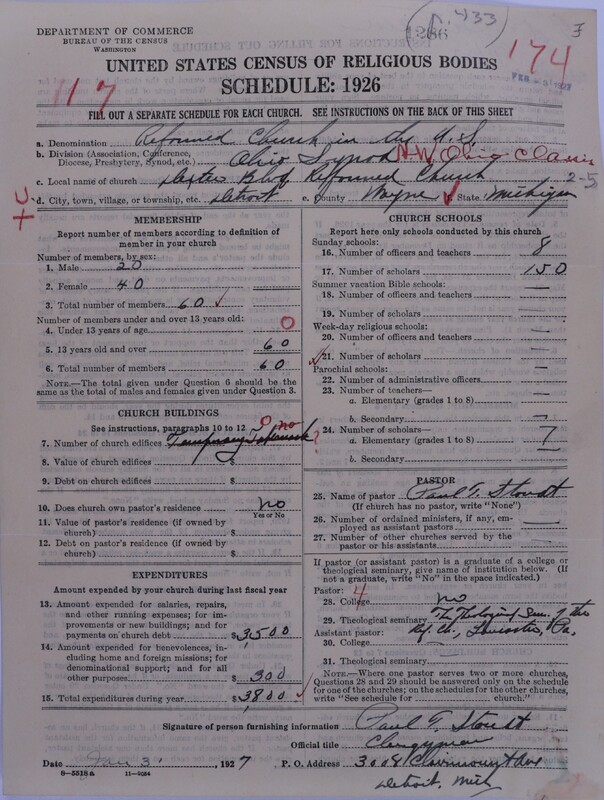 DEPARTMENT OF COMMERCE
BUREAU OF THE CENSUS
WASHINGTON
1286
P. 433
174
I
117
UNITED STATES CENSUS OF RELIGIOUS BODIES
SCHEDULE: 1926
FILL OUT A SEPARATE SCHEDULE FOR EACH CHURCH. SEE INSTRUCTIONS ON THE BACK OF THIS SHEET
a. Denomination Reformed Church in the U.S
b. Division (Association, Conference,
Diocese, Presbytery, Synod, etc.) Ohio Synod N.W. Ohio Classis
c. Local name of church Dexter Blvd Reformed Church 2-5
d. City, town, village, or township, etc. Detroit e. County Wayne State Michigan
MEMBERSHIP
Report number of members according to definition of
member in your church
Number of members, by sex:
1. Male 20
2. Female 40
3. Total number of members 60
Number of members under and over 13 years old:
4. Under 13 years of age 0
5. 13 years old and over 60
6. Total number of members 60
NOTE.—The total given under Question 6 should be
the same as the total of males and females given under Question 3.
CHURCH BUILDINGS
See instructions, paragraphs 10 to 12 0 no
7. Number of church edifices Temporary ?
8. Value of church edifices $
9. Debt on church edifices $
10. Does church own pastor's residence no
Yes or No
11. Value of pastor's residence (if owned by
church) $
12. Debt on pastor's residence (if owned by
church) $
EXPENDITURES
Amount expended by your church during last fiscal year
13. Amount expended for salaries, repairs,
and other running expenses; for im-
provements or new buildings; and for
payments on church debt $3500
14. Amount expended for benevolences,
including home and foreign missions; for
denominational support; and for all
other purposes $300
15. Total expenditures during year $3800
CHURCH SCHOOLS
Report here only schools conducted by this church
Sunday schools:
16. Number of officers and teachers 8
17. Number of scholars 150
Summer vacation Bible schools:
18. Number of officers and teachers —
19. Number of scholars —
Week-day religious schools:
20. Number of officers and teachers —
21. Number of scholars —
Parochial schools:
22. Number of administrative officers —
23. Number of teachers—
a. Elementary (grades 1 to 8) —
b. Secondary —
24. Number of scholars—
a. Elementary (grades 1 to 8)
b. Secondary
PASTOR
25. Name of pastor Paul T. Stoudt
(If church has no pastor, write "None")
26. Number of ordained ministers, if any, em-
ployed as assistant pastors —
27. Number of other churches served by the
pastor or his assistants —
If pastor (or assistant pastor) is a graduate of a college or
theological seminary, give name of institution below. (If
not a graduate, write "No" in the space indicated.)
Pastor: 4
28. College no
29. Theological seminary The Theological Sem. of the
Assistant pastor: Ref. Ch., Lancaster, Pa.
30. College
31. Theological seminary
NOTE.—Where one pastor serves two or more churches,
Questions 28 and 29 should be answered only on the schedule
for one of the churches; on the schedules for the other churches,
write "See schedule for church."
Signature of person furnishing information Paul T. Stoudt
Official title Clergyman
Date Jan 31 1927 P. O. Address 3008 Clairmount Ave
Detroit, Mich
8-5518a 11-9084